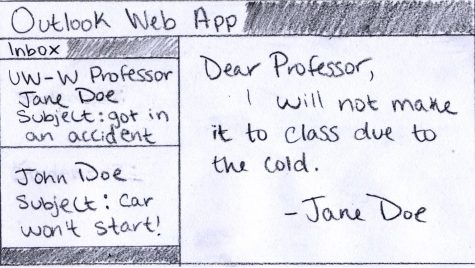 Outlook Web App
Inbox
UW-W Professor
Jane Doe
Subject: got in
an accident
John Doe
Subject: Car
won't start!
Dear Professor,
I will not make
it to class due to
the cold.
-Jane Doe